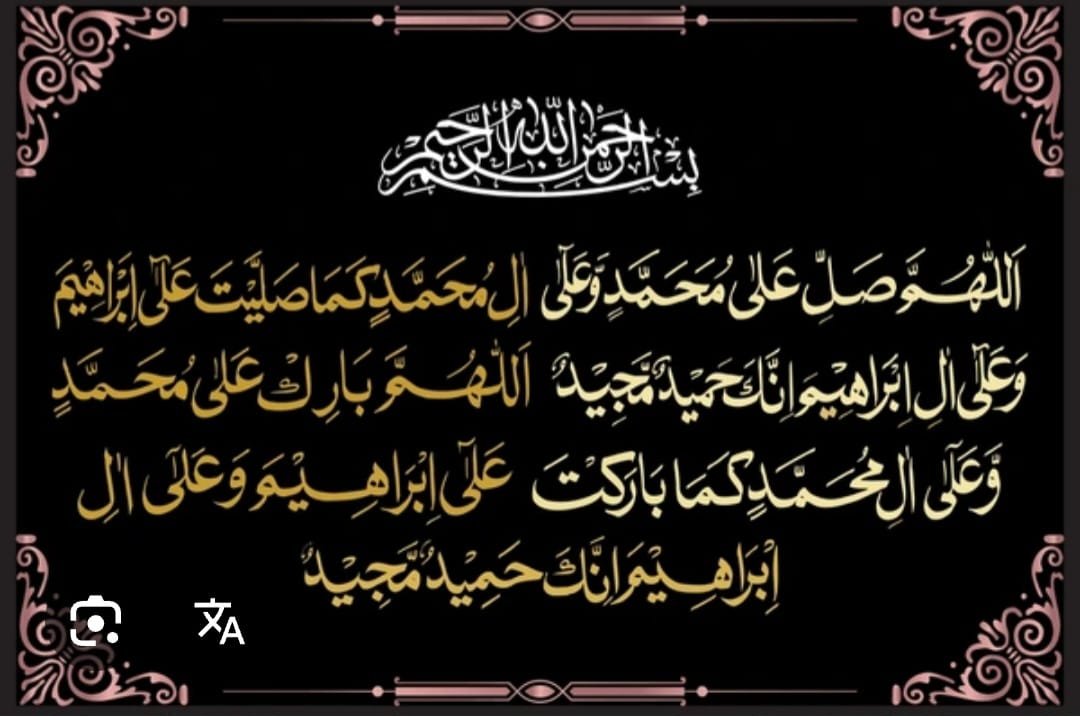 بِسْمِ اللهِ الرَّحْمٰنِ الرَّحِيْمِ
اَللّٰهُمَّ صَلِّ عَلٰى مُحَمَّدٍ وَّعَلٰٓى اٰلِ مُحَمَّدٍ كَمَا صَلَّيْتَ عَلٰٓى اِبْرَاهِيْمَ
وَعَلٰٓى اٰلِ اِبْرَاهِيْمَ اِنَّكَ حَمِيْدٌ مَّجِيْدٌ اَللّٰهُمَّ بَارِكْ عَلٰى مُحَمَّدٍ
وَّعَلٰٓى اٰلِ مُحَمَّدٍ كَمَا بَارَكْتَ عَلٰٓى اِبْرَاهِيْمَ وَعَلٰٓى اٰلِ
اِبْرَاهِيْمَ اِنَّكَ حَمِيْدٌ مَّجِيْدٌ